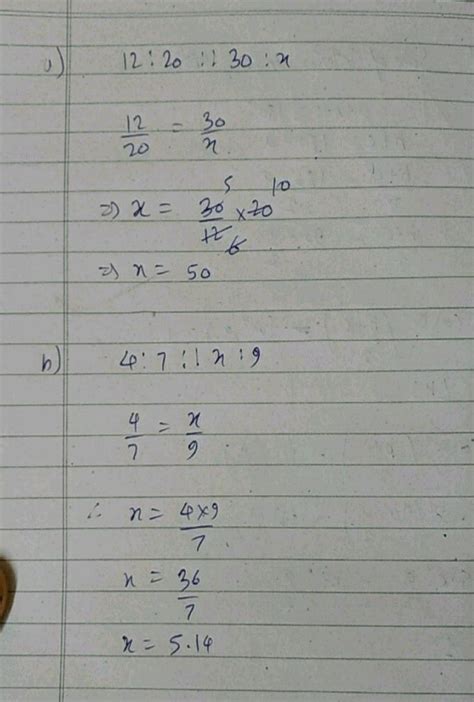 a) 12 : 20 :: 30 : x
12/20 = 30/x
⇒ x = 30/12 × 20 5 10 6
⇒ x = 50
b) 4 : 7 :: x : 9
4/7 = x/9
∴ x = 4×9/7
x = 36/7
x = 5.14